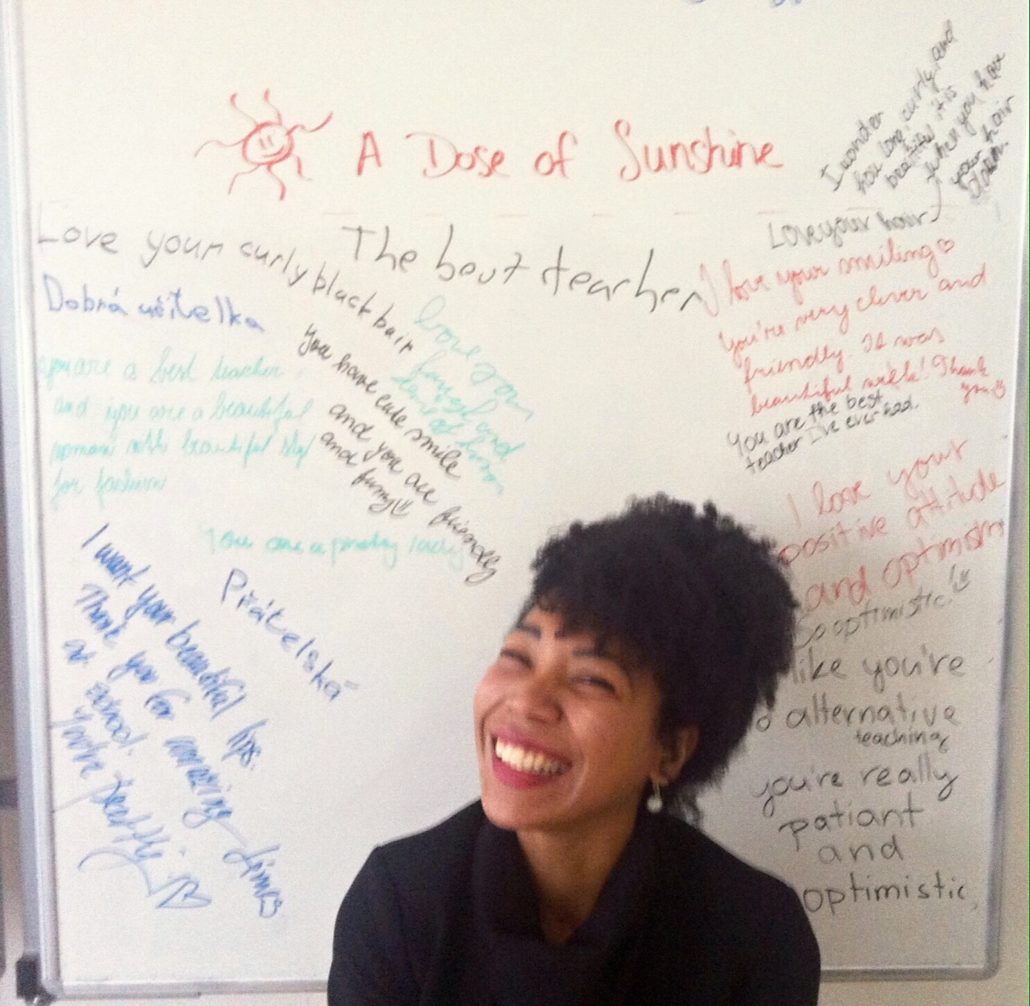 A Dose of Sunshine
I wonder
how long, curly, and
beautiful it is
when you have
your hair
down.
Love your hair
Love your curly black hair
The best teacher
Dobrá učitelka
you are a best teacher
and you are a beautiful
woman with beautiful
for fashion
Love your
you have cute smile
and you are friendly
and funny
I love your smiling ♡
you're very clever and
friendly It was
beautiful week! Thank
you
You are the best
teacher I've ever had.
I love your
positive attitude
and optimism
So optimistic!
like you're
alternative
teaching
you're really
patiant
and
optimistic.
You are a lady
Přátelská
I want your beautiful lips.
Thank you for amazing times
at school.